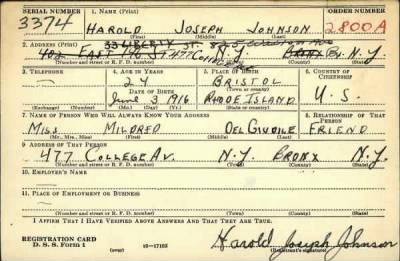 SERIAL NUMBER 1. NAME (Print) ORDER NUMBER
3374 HAROLD JOSEPH JOHNSON 2800A
(First) (Middle) (Last)
2. ADDRESS (Print) 33 LIBERTY ST.
402 EAST 78 ST 477 College Av. N.Y. Bronx N.Y.
(Number and street or R. F. D. number) (Town) (County) (State)
3. TELEPHONE 4. AGE IN YEARS 5. PLACE OF BIRTH 6. COUNTRY OF CITIZENSHIP
— 24 BRISTOL
DATE OF BIRTH (Town or county)
June 3 1916 RHODE ISLAND U.S.
(Exchange) (Number) (Mo.) (Day) (Yr.) (State or country)
7. NAME OF PERSON WHO WILL ALWAYS KNOW YOUR ADDRESS 8. RELATIONSHIP OF THAT PERSON
MISS MILDRED DEL GIUDICE FRIEND
(Mr., Mrs., Miss) (First) (Middle) (Last)
9. ADDRESS OF THAT PERSON
477 COLLEGE AV. N.Y. BRONX N.Y.
(Number and street or R. F. D. number) (Town) (County) (State)
10. EMPLOYER'S NAME
—
11. PLACE OF EMPLOYMENT OR BUSINESS
—
(Number and street or R. F. D. number) (Town) (County) (State)
I AFFIRM THAT I HAVE VERIFIED ABOVE ANSWERS AND THAT THEY ARE TRUE.
REGISTRATION CARD
D. S. S. Form 1 (over) 16—17105 Harold Joseph Johnson
(Registrant's signature)